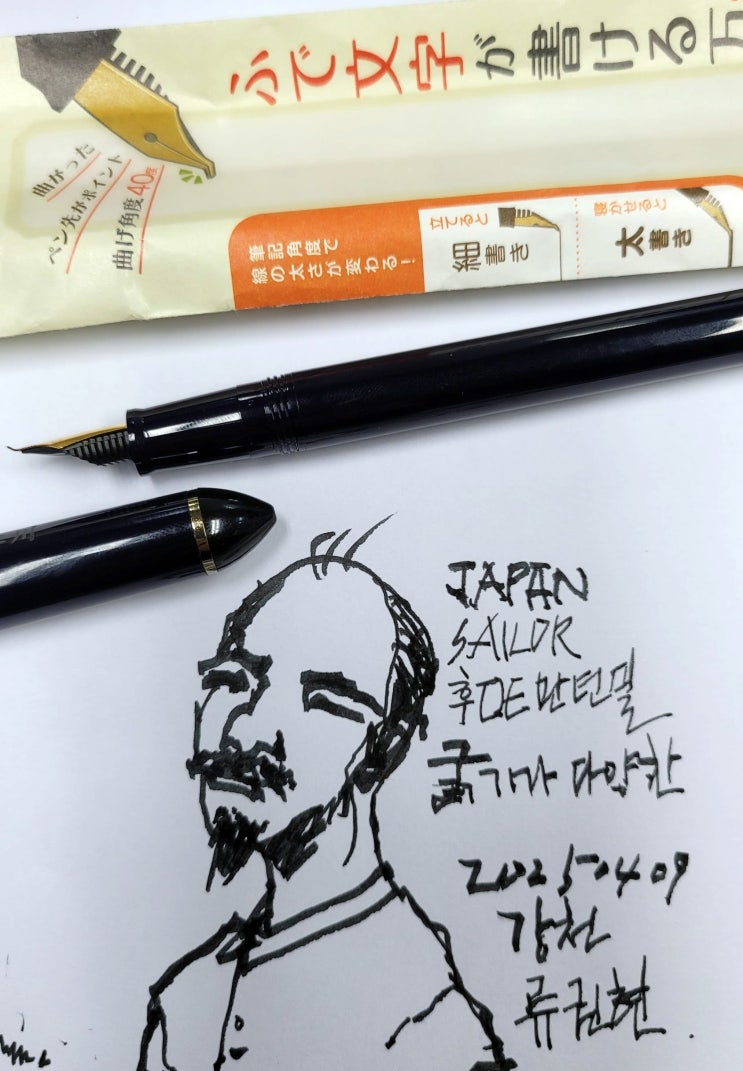 ふで文字が書ける万
曲がった
ペン先がポイント
曲げ角度40度
筆記角度で
線の太さが変わる!
立てると
細書き
寝かせると
太書き
JAPAN
SAILOR
후DE만년필
굵기가 다양한
2025-04 09
강천
류권현